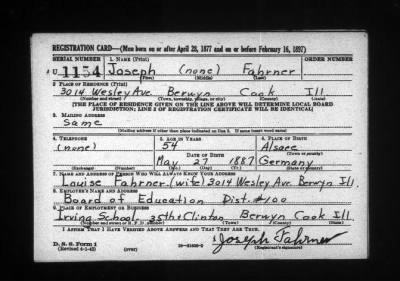 REGISTRATION CARD—(Men born on or after April 28, 1877 and on or before February 16, 1897)
SERIAL NUMBER 1. NAME (Print) ORDER NUMBER
U 1154 Joseph (none) Fahrner
(First) (Middle) (Last)
2. PLACE OF RESIDENCE (Print)
3014 Wesley Ave. Berwyn Cook Ill.
(Number and street) (Town, township, village, or city) (County) (State)
[THE PLACE OF RESIDENCE GIVEN ON THE LINE ABOVE WILL DETERMINE LOCAL BOARD
JURISDICTION; LINE 2 OF REGISTRATION CERTIFICATE WILL BE IDENTICAL]
3. MAILING ADDRESS
Same
[Mailing address if other than place indicated on line 2. If same insert word same]
4. TELEPHONE 5. AGE IN YEARS 6. PLACE OF BIRTH
(none) 54 Alsace
DATE OF BIRTH (Town or county)
May 27 1887 Germany
(Exchange) (Number) (Mo.) (Day) (Yr.) (State or country)
7. NAME AND ADDRESS OF PERSON WHO WILL ALWAYS KNOW YOUR ADDRESS
Louise Fahrner (wife) 3014 Wesley Ave. Berwyn Ill.
8. EMPLOYER'S NAME AND ADDRESS
Board of Education Dist. #100
9. PLACE OF EMPLOYMENT OR BUSINESS
Irving School, 35th & Clinton Berwyn Cook Ill.
(Number and street or R. F. D. number) (Town) (County) (State)
I AFFIRM THAT I HAVE VERIFIED ABOVE ANSWERS AND THAT THEY ARE TRUE.
D. S. S. Form 1 Joseph Fahrner
(Revised 4-1-42) (over) (Registrant's signature)